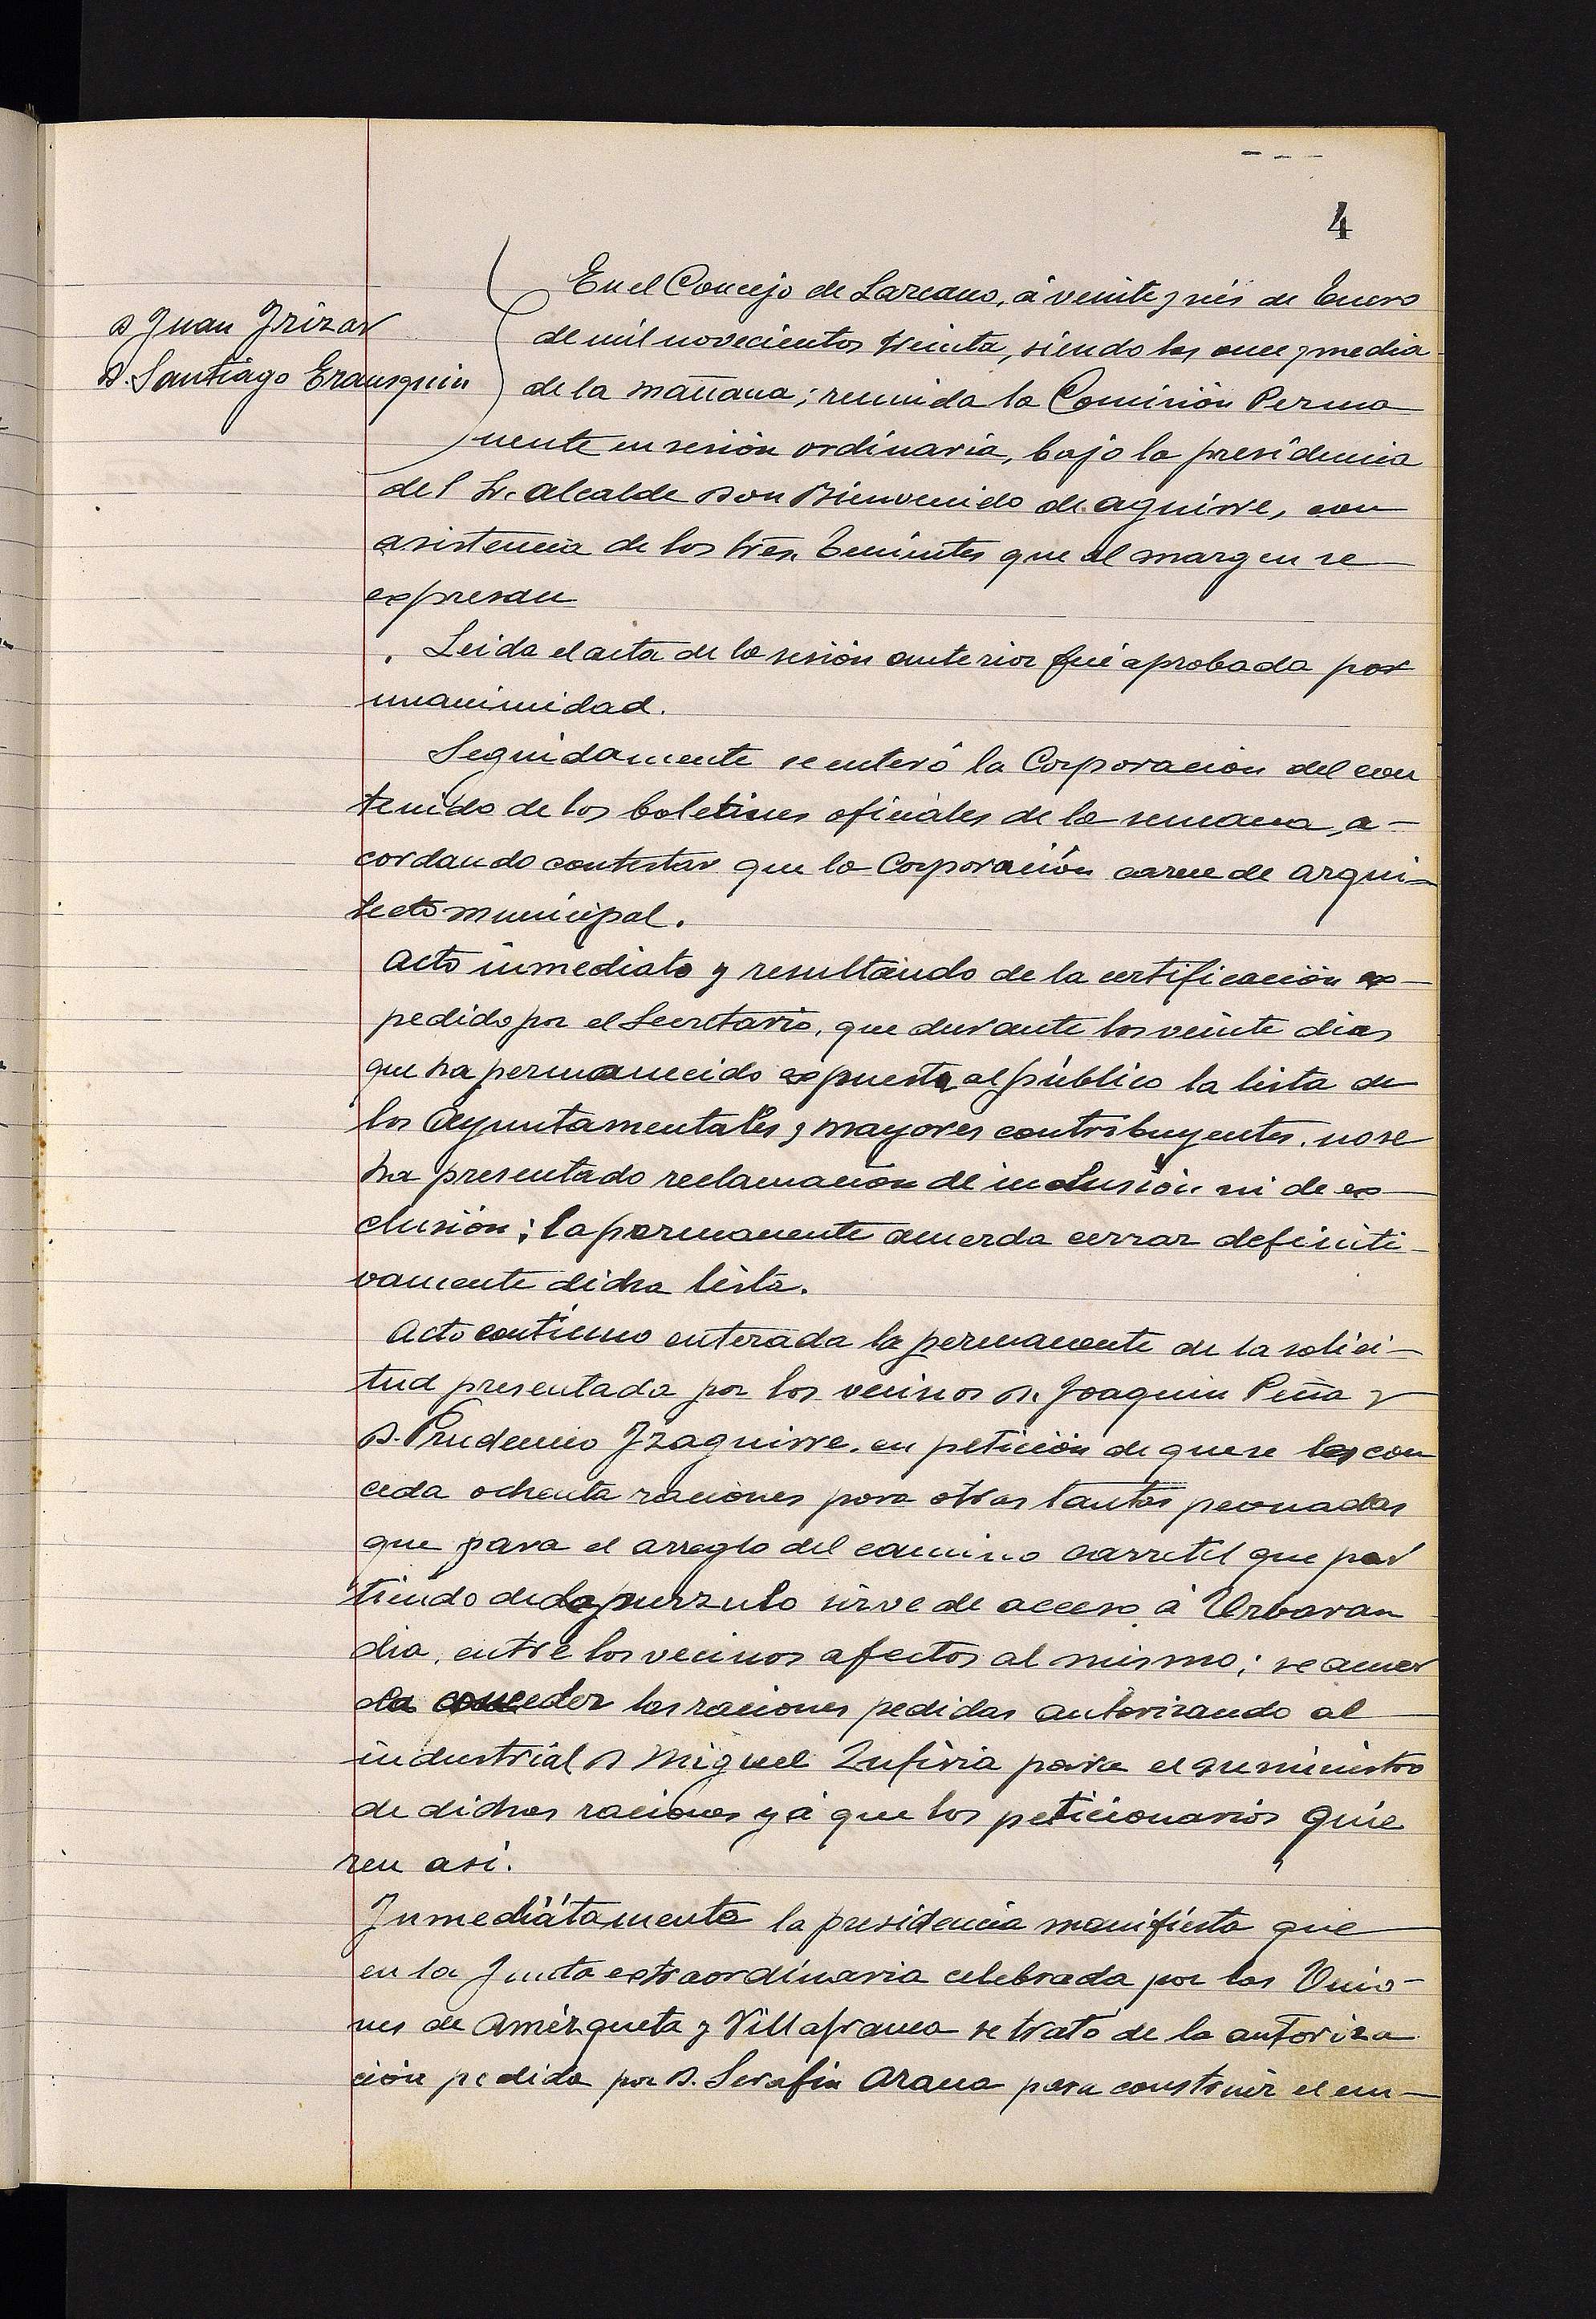 4
D Juan Irizar
D. Santiago Erausquin
En el Concejo de Lazcano, á veinte y seis de Enero
de mil novecientos treinta, siendo las once y media
de la mañana; reunida la Comisión Perma
nente en sesión ordinaria, bajo la presidencia
del Sr. Alcalde Don Bienvenido de Aguirre, con
asistencia de los tres. tenientes que al margen se
expresan
. Leida el acta de la sesión anterior fué aprobada por
unanimidad.
Seguidamente se enteró la Corporacion del con
tenido de los boletines oficiales de la semana, a-
cordando contestar que la Corporación carece de arqui-
tecto municipal.
Acto inmediato y resultando de la certificación ex-
pedida por el Secretario, que durante los veinte dias
que ha permanecido expuesta al público la lista de
los Ayuntamentales y mayores contribuyentes. no se
ha presentado reclamacion de inclusión ni de ex-
clusión; la permanente acuerda cerrar definiti-
vamente dicha lista.
Acto continuo enterada la permanente de la solici-
tud presentada por los vecinos D. Joaquin Peña y
D. Prudencio Izaguirre. en petición de que se les con
ceda ochenta raciones para otras tantas peonadas
que para el arreglo del camino carretil que par
tiendo de sirve de acceso á Urbaran
dia, entre los vecinos afectos al mismo; se acuer
da conceder las raciones pedidas autorizando al
industrial D Miguel Zufiria para el suministro
de dichas raciones yá que los peticionarios quie
ren asi.
Inmediátamente la presidencia manifiesta que
en la Junta extraordinaria celebrada por las Unio-
nes de Amézqueta y Villafranca se trató de la autoriza
ción pedida por D. Serafin Arana para construir el em-